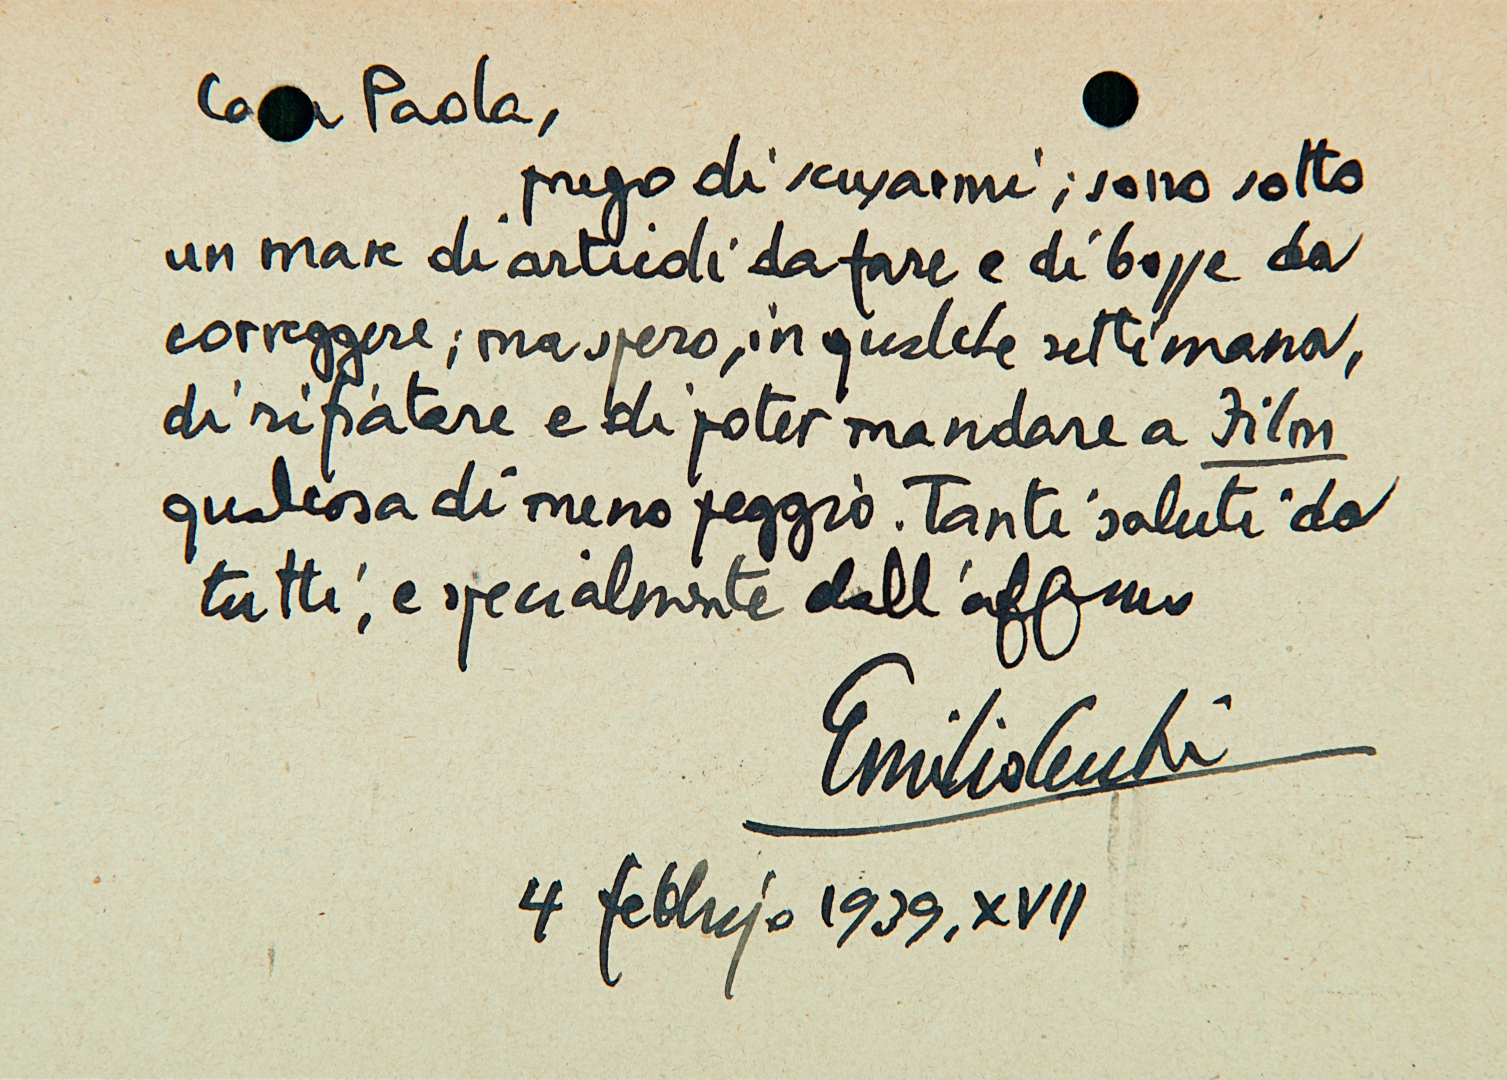 Cara Paola,
prego di scusarmi; sono sotto
un mare di articoli da fare e di bozze da
correggere; ma spero, in qualche settimana,
di rifiatare e di poter mandare a Film
qualcosa di meno peggio. Tanti saluti da
tutti, e specialmente dall'affmo
Emilio Cecchi
4 febbrajo 1939, XVII